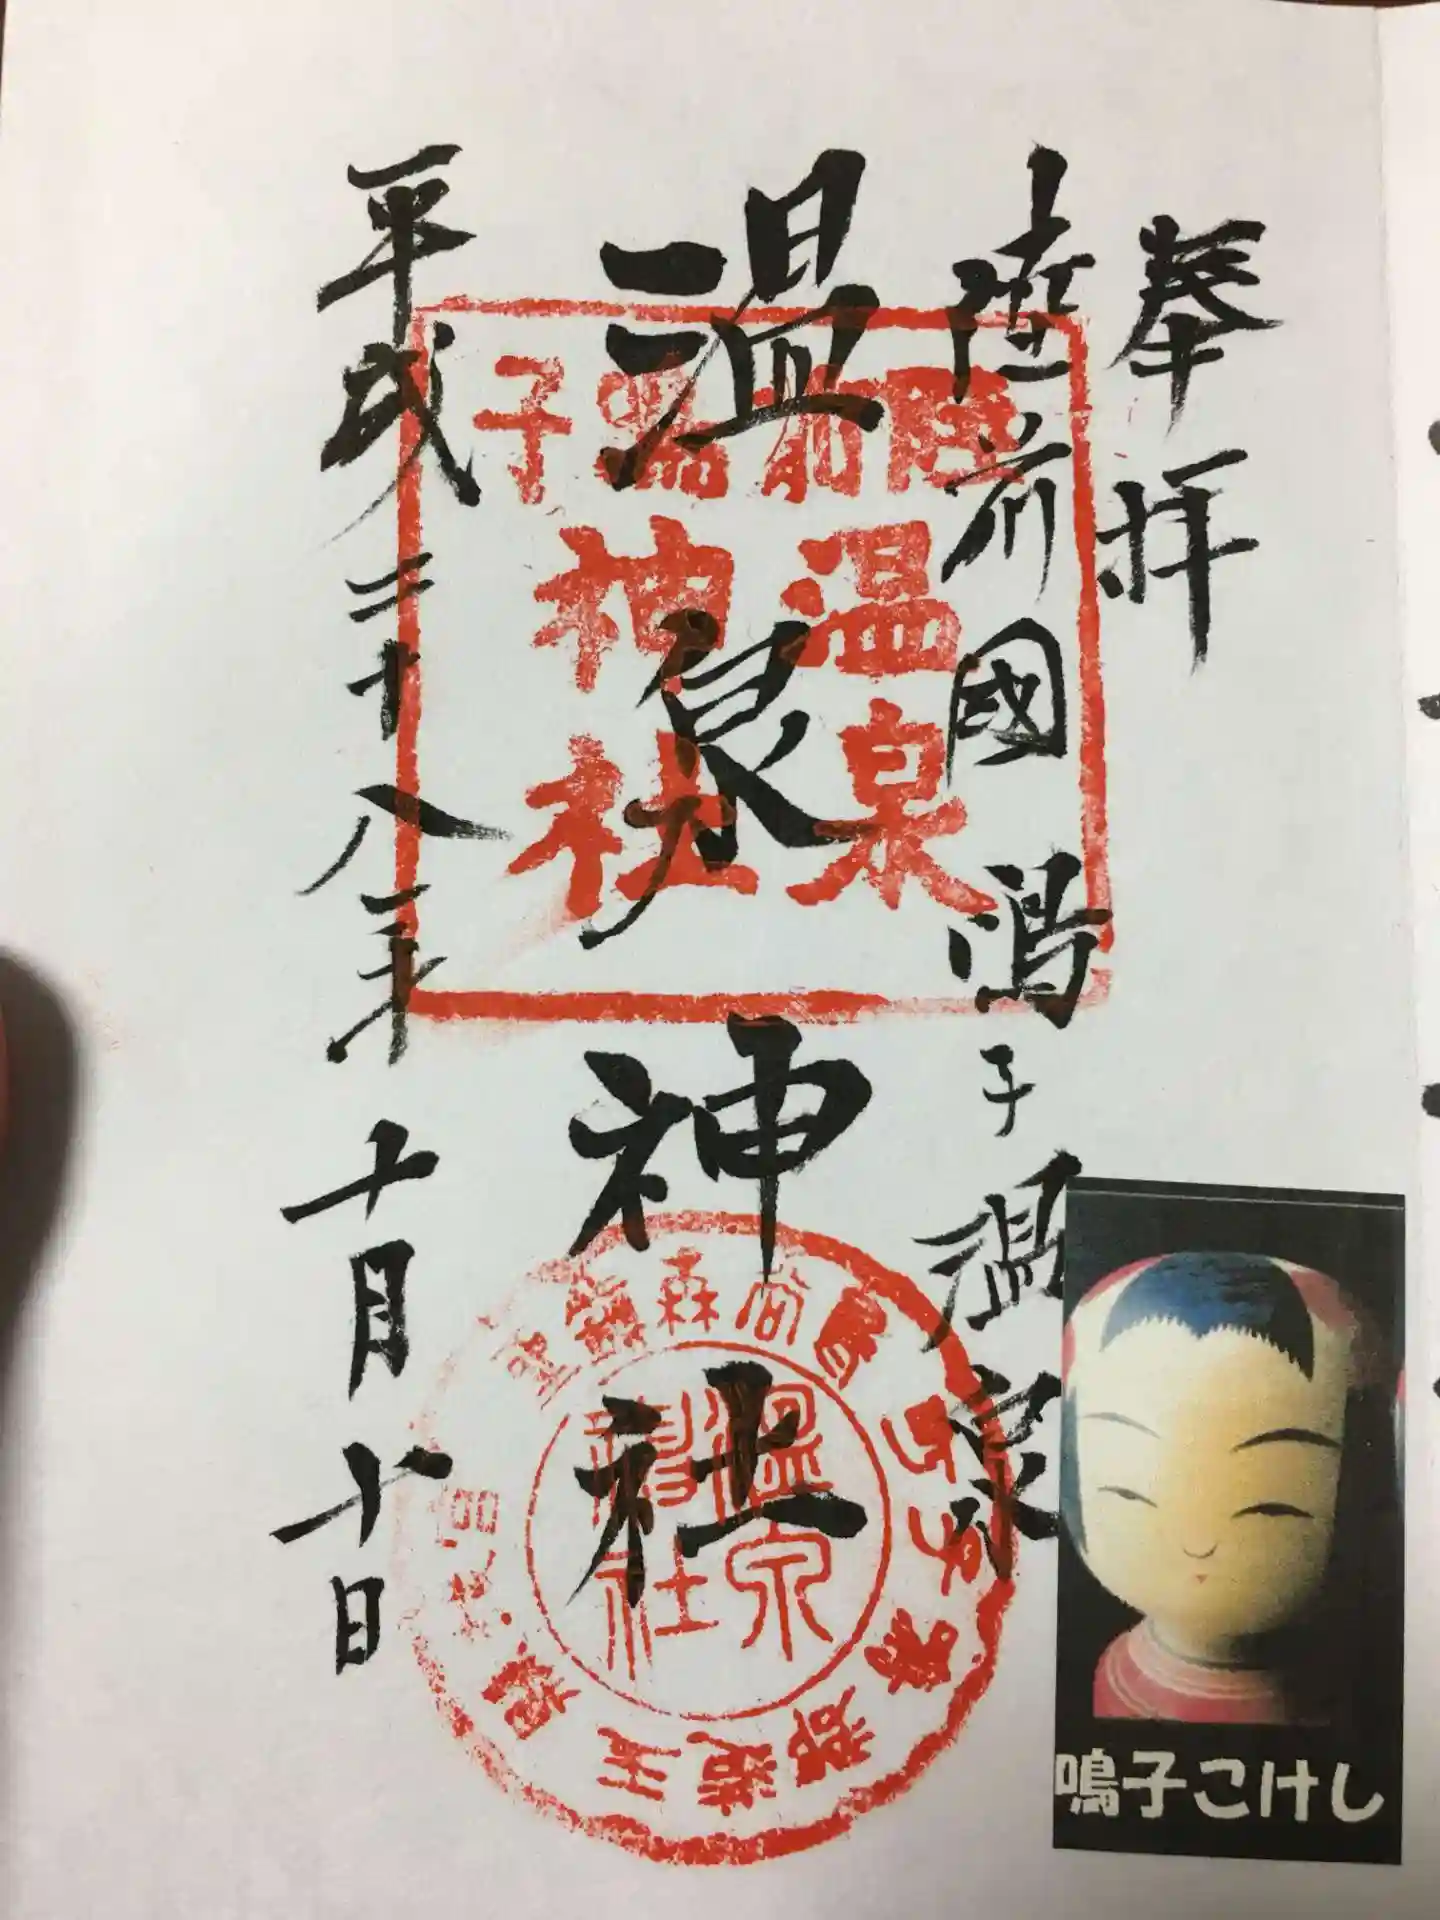 奉拝
陸前國鳴子温泉
温泉神社
平成二十八年十月十日
陸前鳴子
温泉
神社
温泉
神社
鳴子こけし